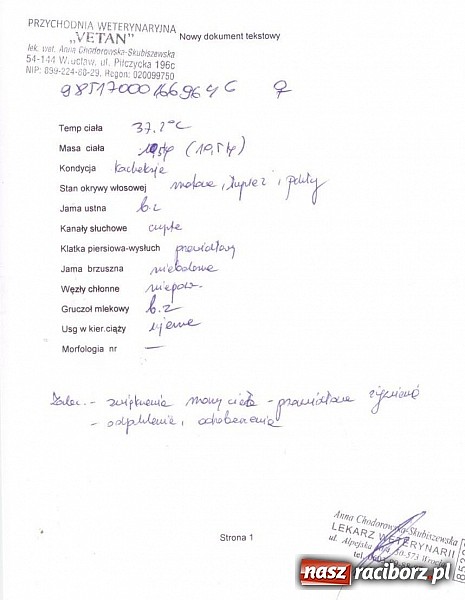 PRZYCHODNIA WETERYNARYJNA
„VETAN"
Nowy dokument tekstowy
lek. wet. Anna Chodorowska-Skubiszewska
54-144 Wrocław, ul. Pilczycka 196c
NIP: 899-224-80-29, Regon: 020099750
♀
Temp ciała 37,2°C
Masa ciała (10,5 kg)
Kondycja Kacheksja
Stan okrywy włosowej matowa, łupież i pchły
Jama ustna b.z
Kanały słuchowe czyste
Klatka piersiowa-wysłuch prawidłowy
Jama brzuszna niebolesna
Węzły chłonne niepow.
Gruczoł mlekowy b.z
Usg w kier.ciąży ujemne
Morfologia nr —
Zalec. - zwiększenie masy ciała - prawidłowe żywienie
- odpchlenie, odrobaczenie
Anna Chodorowska-Skubiszewska
LEKARZ WETERYNARII
ul. Alpejska
50-573
tel.
Strona 1
nasz raciborz.pl